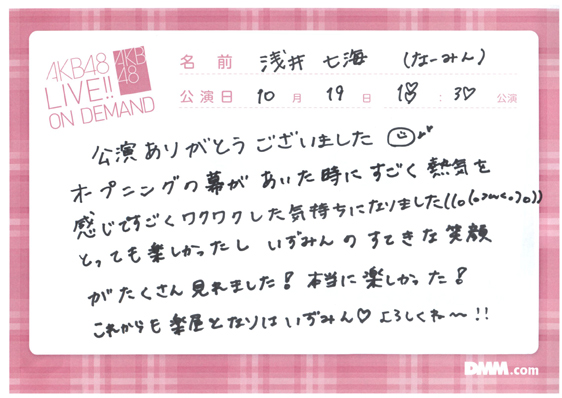 AKB48
LIVE!!
ON DEMAND
AKB
48
名前 浅井七海 (なーみん)
公演日 10月 19日 18:30 公演
公演ありがとうございました
オープニングの幕があいた時にすごく熱気を
感じですごくワクワクした気持ちになりました((o(>ω<)o))
とっても楽しかったし いずみんのすてきな笑顔
がたくさん見れました! 本当に楽しかった!
これからも楽屋となりはいずみん♡よろしくね〜!!
DMM.com